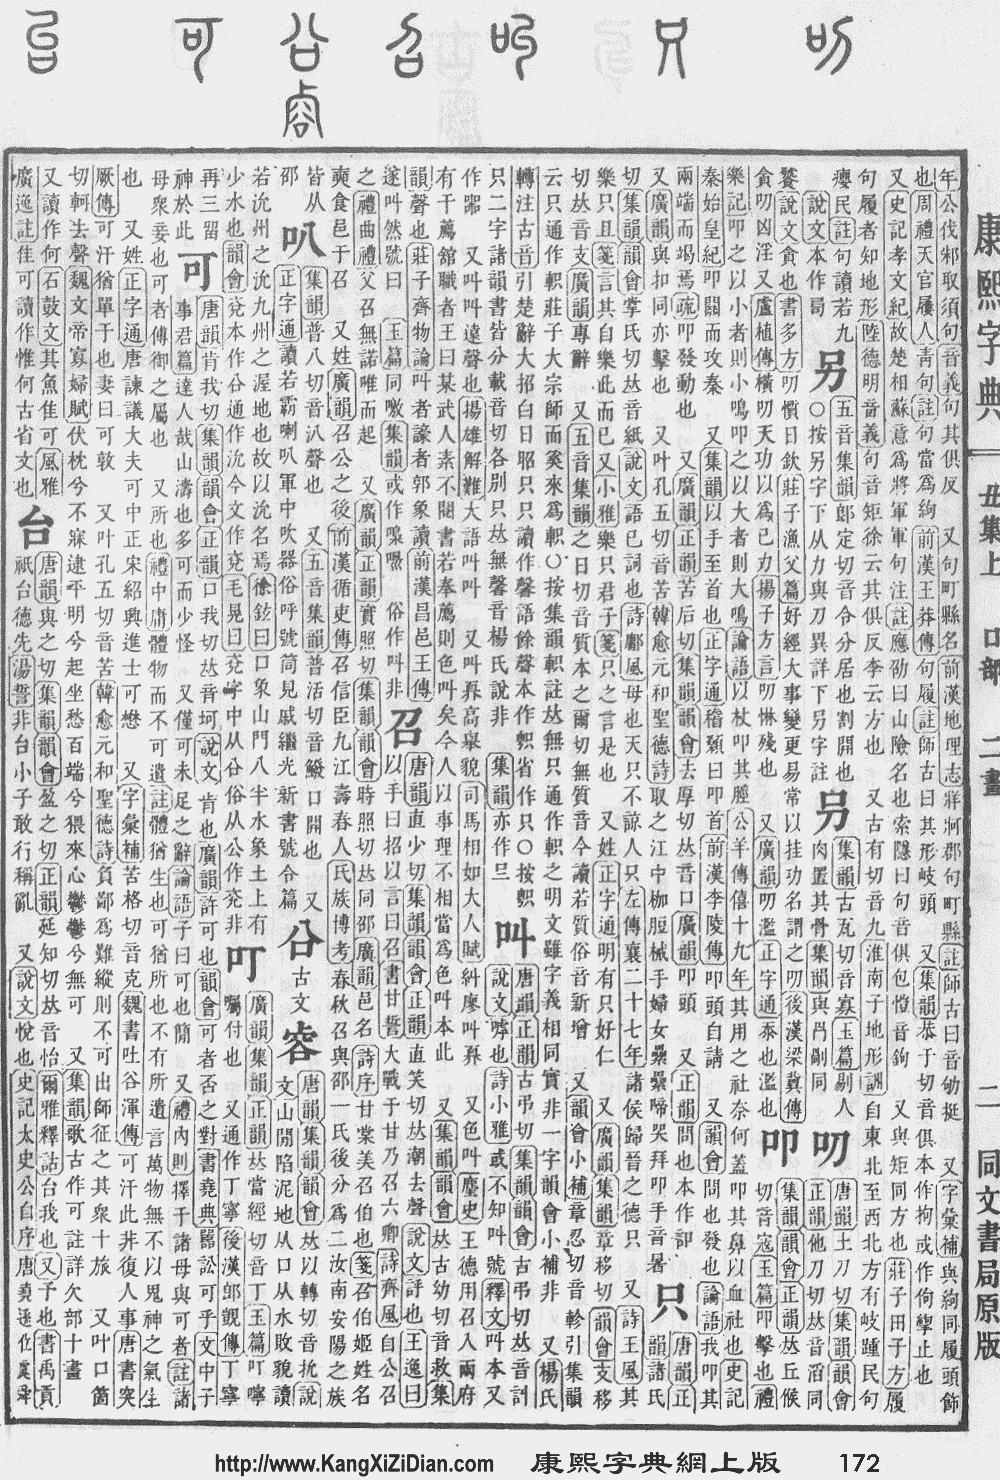 康熙字典 丑集上 口部 二畫 二 同文書局原版
年公伐邾取須句音義句其俱反 又句町縣名前漢地理志牂牁郡句町縣註師古曰音劬挺 又字彙補與絇同履頭飾
也周禮天官屨人靑句註句當爲絇 前漢王莽傳句履註師古曰其形岐頭 又集韻恭于切音俱本作拘或作佝搫止也
又史記孝文紀故楚相蘇意爲將軍軍句注註應劭曰山險名也索隱曰句音俱包愷音鉤 又與矩同方也莊子田子方履
句履者知地形陸德明音義句音矩徐云其俱反李云方也 又古有切音九淮南子地形訓自東北至西北方有岐踵民句
癭民註句讀若九
說文本作局
另 五音集韻郎定切音令分居也割開也
○按另字下从力與刀異詳下叧字註
叧 集韻古瓦切音寡玉篇剮人
肉置其骨集韻與冎剮同
叨 唐韻土刀切集韻韻會
正韻他刀切𠀤音滔同
饕說文貪也書多方叨懫日欽莊子漁父篇好經大事變更易常以挂功名謂之叨後漢梁冀傳
貪叨凶淫 又盧植傳橫叨天功以爲己力揚子方言叨惏殘也 又廣韻叨濫正字通忝也濫也
叩 集韻韻會正韻𠀤丘候
切音寇玉篇叩擊也禮
樂記叩之以小者則小鳴叩之以大者則大鳴論語以杖叩其脛公羊傳僖十九年其用之社奈何蓋叩其鼻以血社也史記
秦始皇紀叩關而攻秦 又集韻以手至首也正字通稽顙曰叩首前漢李陵傳叩頭自請 又韻會問也發也論語我叩其
兩端而竭焉疏叩發動也 又廣韻正韻苦后切集韻韻會去厚切𠀤音口廣韻叩頭 又正韻問也本作訆
又廣韻與扣同亦擊也 又叶孔五切音苦韓愈元和聖德詩取之江中枷脰械手婦女纍纍啼哭拜叩手音暑
只 唐韻正
韻諸氏
切集韻韻會掌氏切𠀤音紙說文語已詞也詩鄘風母也天只不諒人只左傳襄二十七年諸侯歸晉之德只 又詩王風其
樂只且箋言其自樂此而已又小雅樂只君子箋只之言是也 又姓正字通明有只好仁 又廣韻集韻章移切韻會支移
切𠀤音支廣韻專辭 又五音集韻之日切音質本之爾切無質音今讀若質俗音新增 又韻會小補章忍切音軫引集韻
云只通作軹莊子大宗師而奚來爲軹○按集韻軹註𠀤無只通作軹之明文雖字義相同實非一字韻會小補非 又楊氏
轉注古音引楚辭大招白日昭只只讀作聲語餘聲本作軹省作只○按軹
只二字諸韻書皆分載音切各別只𠀤無聲音楊氏說非
叫 唐韻正韻古弔切集韻韻會古弔切𠀤音訆
說文嘑也詩小雅或不知叫號釋文叫本又
作嘂 又叫叫遠聲也揚雄解難大語叫叫 又叫奡高舉貌司馬相如大人賦糾廖叫奡 又色叫麈史王德用召入兩府
有干薦館職者王曰某武人素不閱書若奉薦則色叫矣今人以事理不相當爲色叫本此
韻聲也莊子齊物論叫者譹者郭象讀前漢昌邑王傳
遂叫然號曰 玉篇同噭集韻或作嘄㗅 俗作呌非
召 唐韻直少切集韻韻會正韻直笑切𠀤潮去聲說文評也王逸曰
以手曰招以言曰召書甘誓大戰于甘乃召六卿詩齊風自公召
之禮曲禮父召無諾唯而起 又廣韻正韻實照切集韻韻會時照切𠀤同邵廣韻邑名詩序甘棠美召伯也箋召伯姬姓名
奭食邑于召 又姓廣韻召公之後前漢循吏傳召信臣九江壽春人氏族博考春秋召與邵一氏後分爲二汝南安陽之族
皆从
邵
叭 集韻普八切音汃聲也 又五音集韻普活切音鱍口開也
正字通讀若霸喇叭軍中吹器俗呼號筒見戚繼光新書號令篇
㕣 古文
㕡 唐韻集韻韻會𠀤以轉切音抗說
文山閒陷泥地从口从水敗貌讀
若沇州之沇九州之渥地也故以沇名焉徐鉉曰口象山門八半水象土上有
少水也韻會兗本作㕣通作沇今文作兗毛晃曰兗字中从㕣俗从公作兖非
叮 廣韻集韻正韻𠀤當經切音丁玉篇叮嚀
囑付也 又通作丁寧後漢郎顗傳丁寧
再三留
神於此
可 唐韻肯我切集韻韻會正韻口我切𠀤音坷說文肯也廣韻許可也韻會可者否之對書堯典嚚訟可乎文中子
事君篇達人哉山濤也多可而少怪 又僅可未足之辭論語子曰可也簡 又禮內則擇于諸母與可者註諸
母衆妾也可者傅御之屬也 又所也禮中庸體物而不可遺註體猶生也可猶所也不有所遺言萬物無不以鬼神之氣生
也 又姓正字通唐諫議大夫可中正宋紹興進士可懋 又字彙補苦格切音克魏書吐谷渾傳可汗此非復人事唐書突
厥傳可汗猶單于也妻曰可敦 又叶孔五切音苦韓愈元和聖德詩負鄙爲難縱則不可出師征之其衆十旅 又叶口箇
切軻去聲魏文帝寡婦賦伏枕兮不寐逮平明兮起坐愁百端兮猥來心鬱鬱兮無可 又集韻歌古作可註詳欠部十畫
又讀作何石鼓文其魚隹可風雅
廣逸註隹可讀作惟何古省文也
台 唐韻與之切集韻韻會盈之切正韻延知切𠀤音怡爾雅釋詁台我也又予也書禹貢
祇台德先湯誓非台小子敢行稱亂 又說文悅也史記太史公自序唐堯遜位虞舜
http://www.KangXiZiDian.com 康熙字典網上版 172